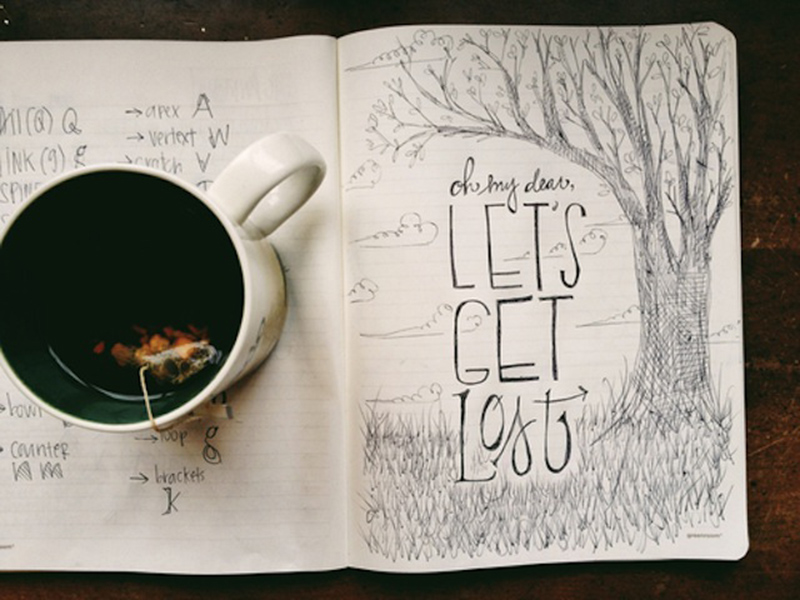 (Q) Q
INK (g) g
→ apex A
→ vertext W
→ bowl
→ counter
→ loop g
→ brackets
k
oh my dear,
LET'S
GET
LOST